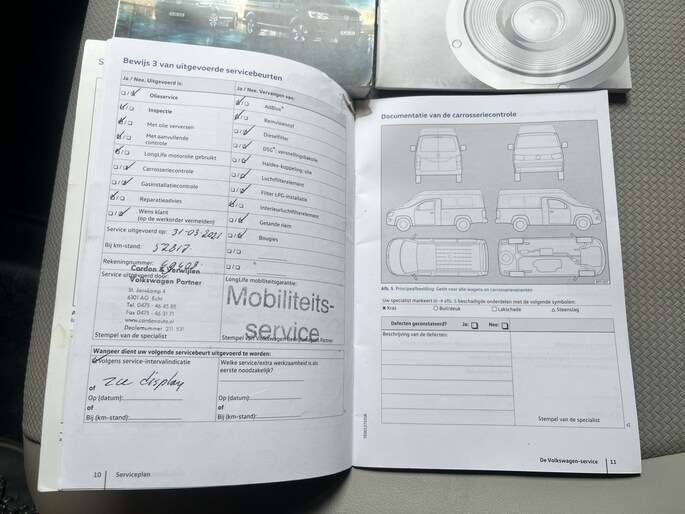 Bewijs 3 van uitgevoerde servicebeurten
Ja / Nee. Uitgevoerd is:
Olieservice
Inspectie
Met olie verversen
Met aanvullende
controle
LongLife motorolie gebruikt
Carrosseriecontrole
Gasinstallatiecontrole
Reparatieadvies
Wens klant
(op de werkorder vermelden)
Service uitgevoerd op: 31-03-2021
Bij km-stand: 52817
Rekeningnummer:
Service uitgevoerd door:
Cardon & Verwijlen
Volkswagen Partner
6101 AG Echt
Tel. 0475 - 46 45 85
Fax 0475 - 46 31 71
Dealernummer 211 531
Stempel van de specialist
Ja / Nee. Vervangen van:
AdBlue®
Remvloeistof
Dieselfilter
DSG®: versnellingsbakolie
Haldex-koppeling: olie
Luchtfilterelement
Filter LPG-installatie
Interieurluchtfilterelement
Getande riem
Bougies
LongLife mobiliteitsgarantie:
Mobiliteits-
service
Wanneer dient uw volgende servicebeurt uitgevoerd te worden:
volgens service-intervalindicatie
zie display
of
Op (datum):
of
Bij (km-stand):
Welke service/extra werkzaamheid is als
eerste noodzakelijk?
Op (datum):
of
Bij (km-stand):
10 Serviceplan
Documentatie van de carrosseriecontrole
Afb. 5 Principeafbeelding: Geldt voor alle wagens en carrosserievarianten
Uw specialist markeert in → afb. 5 beschadigde onderdelen met de volgende symbolen:
× Kras ○ Buil/deuk □ Lakschade △ Steenslag
Defecten geconstateerd? Ja: Nee:
Beschrijving van de defecten:
Stempel van de specialist
De Volkswagen-service 11